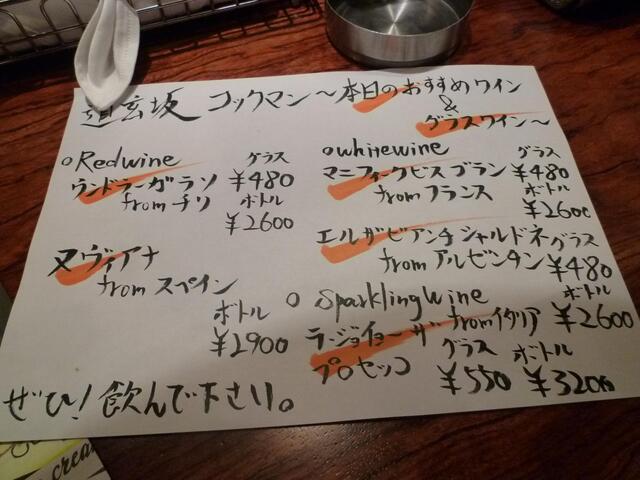 道玄坂 コックマン～本日のおすすめワイン
&
グラスワイン～
○Redwine
グラス
ウンドラーガラソ ¥480
from チリ ボトル
¥2600
ヌヴィアナ
from スペイン
ボトル
¥2900
○whitewine
グラス
マニフィークビスブラン ¥480
from フランス ボトル
¥2600
エルザビアンチシャルドネ グラス
from アルゼンタン ¥480
ボトル
¥2600
○ Sparklingwine
ラ・ジョイヨーザ from イタリア
プロセッコ グラス ボトル
¥550 ¥3200
ぜひ!飲んで下さい。
cream